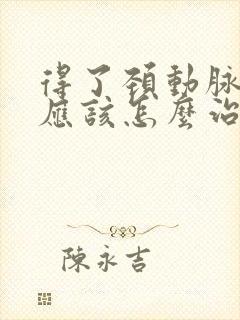 得了頚動脉
應該怎麼治
陳永吉